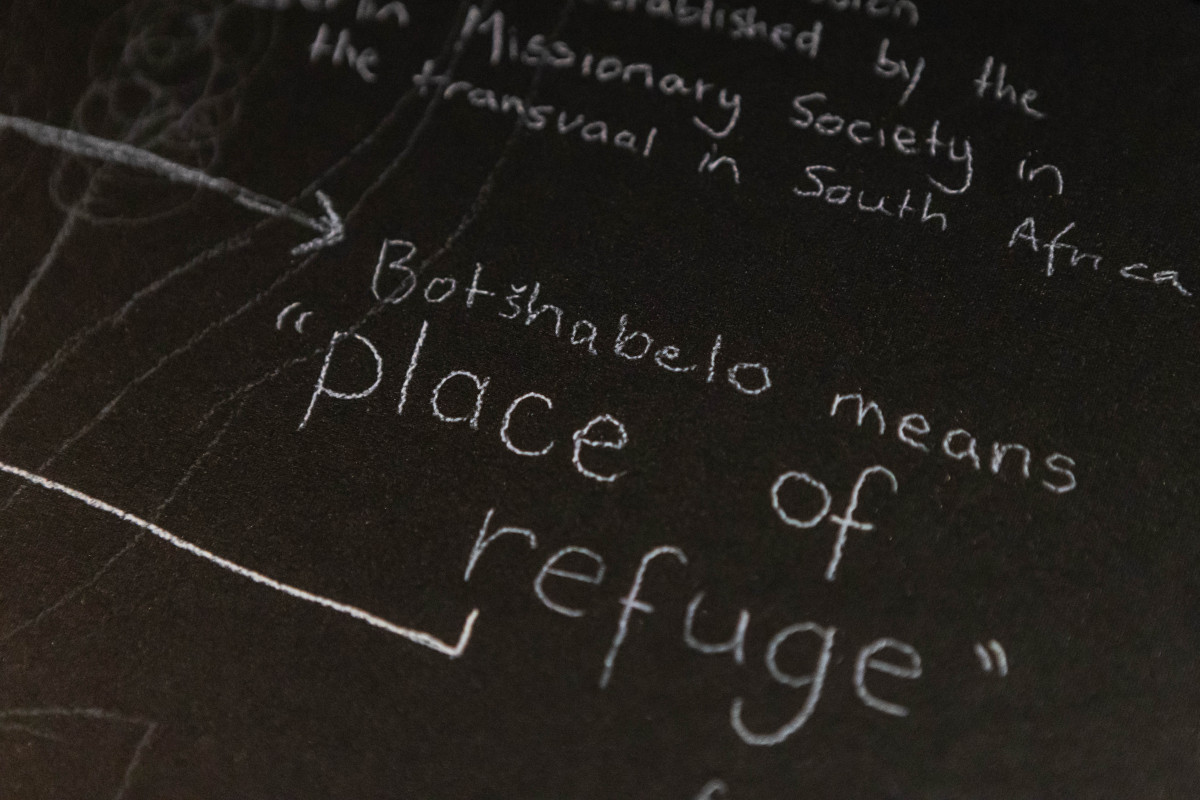 established by the
Missionary Society in
the transvaal in South Africa
Botšhabelo means
"place of
refuge"